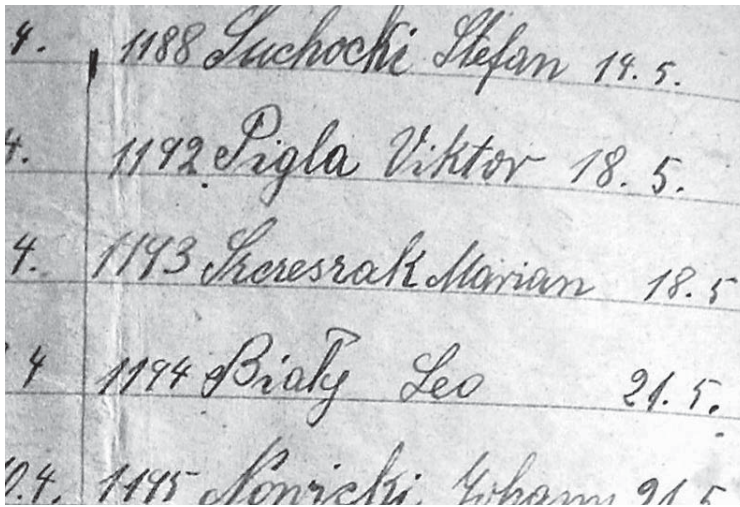 4. 1188 Suchocki Stefan 14. 5.
4. 1192 Pigla Viktor 18. 5.
4. 1193 Szczeszak Marian 18. 5
4 1194 Biały Leo 21. 5.
0.4. 1195 Nowicki Johann 21 5